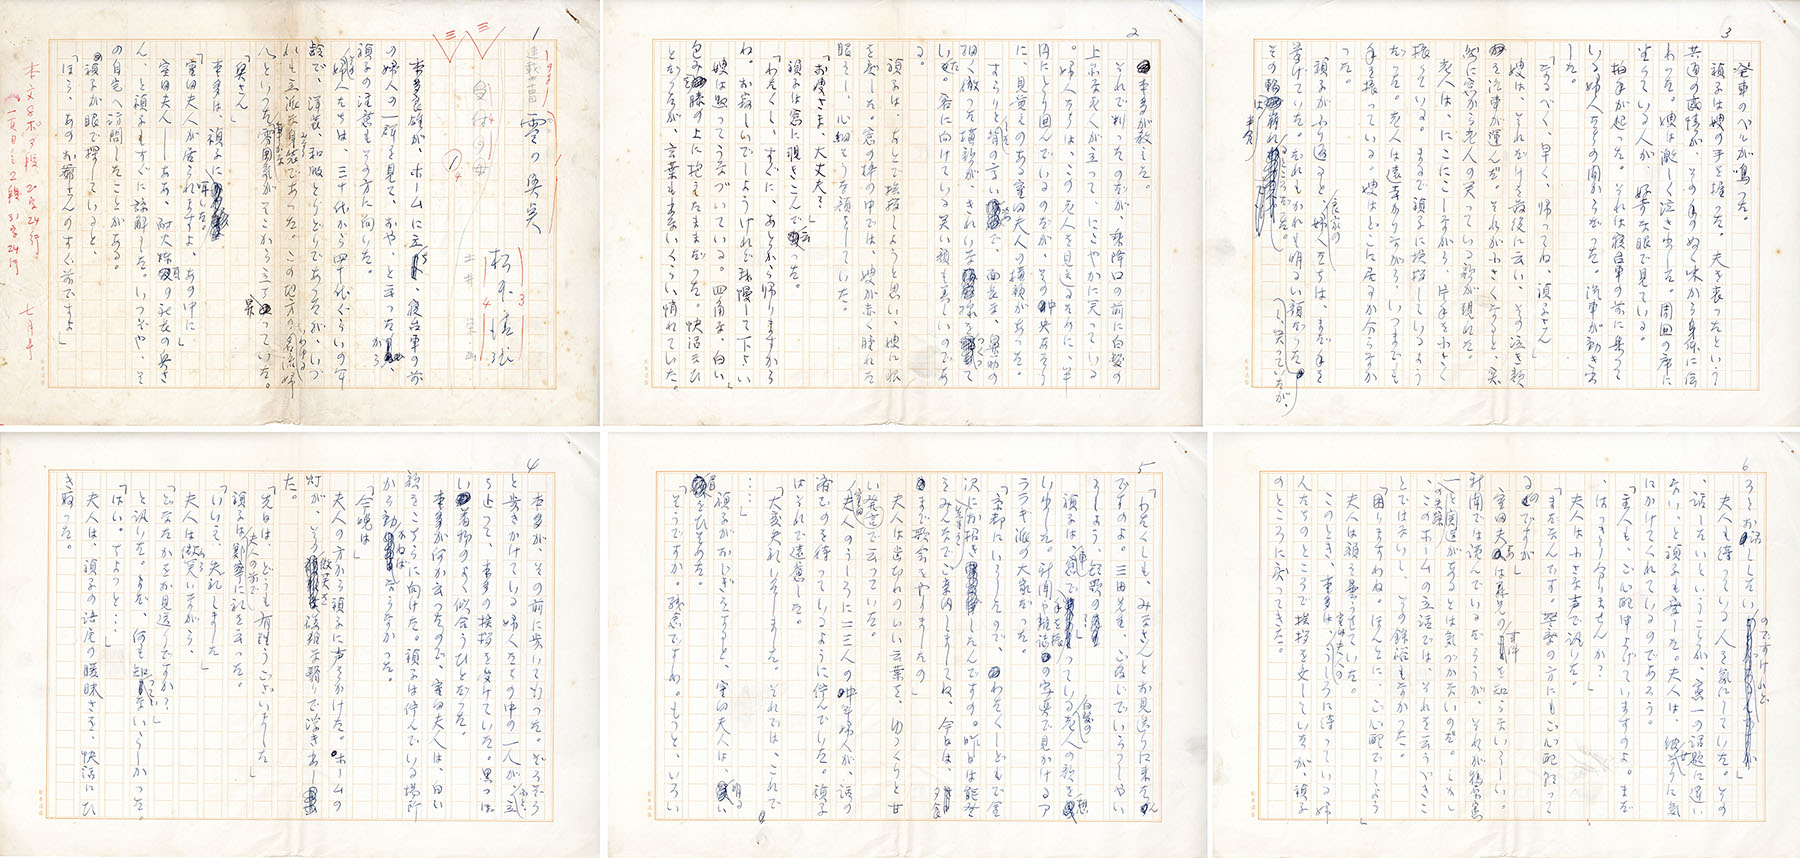 1
零の
松本清張
本多良雄が、ホームに立つ、寝台車の前
の婦人の一群を見て、おや、と云ったから、
禎子の注意もその方に向いた。
婦人たちは、三十代から四十代ぐらいの年
齢で、洋装、和服とりどりであったが、いづ
れも立派な身装であった。この地方の名流婦
人といった雰囲気がそこから立っていた。
「奥さん」
本多は、禎子に耳した。
「室田夫人が居られますよ、あの中に」
室田夫人――ああ、耐火煉瓦の社長の奥さ
ん、と禎子もすぐに諒解した。いつぞや、そ
の自宅へ訪問したことがある。
禎子が眼で探していると、
「ほら、あのお婆さんのすぐ前ですよ」
七月号
2
本多が教えた。
それで判ったのだが、乗降口の前に白髪の
上品な老人が立って、にこやかに笑っている
。婦人たちは、この老人を見送るために、半
円にとり囲んでいるのだが、その中央あたり
に、見覚えのある室田夫人の横顔があった。
すらりと背の高い で、面長な、鼻筋の
細く徹った横顔が、きれいな線をつくって
いた。客に向けている笑い顔も美しいのであ
る。
禎子は、あとで挨拶しようと思い、嫂に眼
を戻した。窓の枠の中では、嫂が赤く腫れた
眼をし、心細そうな顔をしていた。
「お嫂さま、大丈夫?」
禎子は窓に覗きこんで云った。
「わたくし、すぐに、あとから帰りますから
ね。お寂しいでしょうけれど我慢して下さい」
嫂は黙ってうなづいている。四角な、白い
包みを膝の上に抱えたままだった。快活なひ
とだったが、言葉も出ないくらい悄れていた。
3
発車のベルが鳴った。
禎子は嫂の手を握った。夫を喪ったという
共通の感情が、その手のぬく味から身体に伝
わった。嫂は激しく泣き出した。周囲の席に
坐っている人が、好奇な眼で見ている。
拍手が起った。それは寝台車の前に集って
いる婦人たちの間からだった。汽車が動き出
した。
「なるべく、早く、帰ってね、禎子さん」
嫂は、それだけを最後に云い、その泣き顔
を汽車が運んだ。それが小さくなると、突
然に窓から老人の笑っている顔が現れた。
老人は、にこにこしながら、片手を小さく
振っている。まるで禎子に挨拶しているよう
だった。老人は遠ざかりながら、いつまでも
手を振っている。嫂はどこに居るか分らなか
った。
禎子がふり返ると、良家の婦人たちは、まだ手を
挙げていた。だれもかれも明るい顔だった。
4
本多が、その前に歩いて行った。ぞろぞろ
と歩きかけている婦人たちの中の一人が、立
ち止って、本多の挨拶を受けていた。黒っぽ
い着物のよく似合うひとだった。
本多が何か云ったので、室田夫人は、白い
顔をこちらに向けた。禎子は佇んでいる場所
から動かなかった。
「今晩は」
夫人の方から禎子に声をかけた。ホームの
灯が、その微笑を繊細な翳りで浮きあげ
た。
「先日は、どうも有難うございました」
禎子は夫人の前で鄭寧に礼を云った。
「いいえ、失礼しました」
夫人は微笑いながら、
「どなたかをお見送りですか?」
と訊いた。まだ、何も知っていないらしかった。
「はい。ちょっと……」
夫人は、禎子の語尾の曖昧さを、快活にひ
きとった。
5
「わたくしも、みなさんとお見送りに来たん
ですのよ。三田先生、ご存じでいらっしゃい
ましょう、お歌の」
禎子は、急いで手を振っている白髪の老人の顔を想
い出した。新聞や雑誌の写真で見かけるア
ララギ派の大家だった。
「京都にいらしたので、わたくしどもで金
沢にお招きしたんですの。昨日は能登
をみんなでご案内しましてね、今日は、夕食
まで歌会をやりましたの」
夫人は歯ぎれのいい言葉を、ゆっくりと甘
い発音で云っていた。
夫人のうしろに二三人の中年婦人が、話の
済むのを待っているように佇んでいた。禎子
はそれで遠慮した。
「大変失礼いたしました。それでは、これで
……」
禎子がおじぎをすると、室田夫人は、明るい
眉をひそめた。
「そうですか。残念ですわ。もっと、いろい
6
ろとお話したいのですけれど」
夫人も待っている人を気にしていた。その
、話したいということが、憲一の話題に違い
ない、と禎子も察した。夫人は、彼女に気
にかけてくれているのであろう。
「主人も、ご心配申上げていますのよ。まだ
、はっきり分りませんか?」
夫人は小さな声で訊いた。
「まだなんです。警察の方にもご心配願って
るのですが」
室田夫人は義兄の事件を知らないらしい。
新聞では読んでいるだろうが、それが鵜原憲
一の失踪と関連があるとは気がつかないのだ。しかし
、このホームの立話では、それを云うべきこ
とではないし、その余裕もなかった。
「困りますわね。ほんとに、ご心配でしょう」
夫人は顔を曇らせていた。
このとき、本多は、室田夫人のうしろに待っている婦
人たちのところで挨拶を交していたが、禎子
のところに戻ってきた。